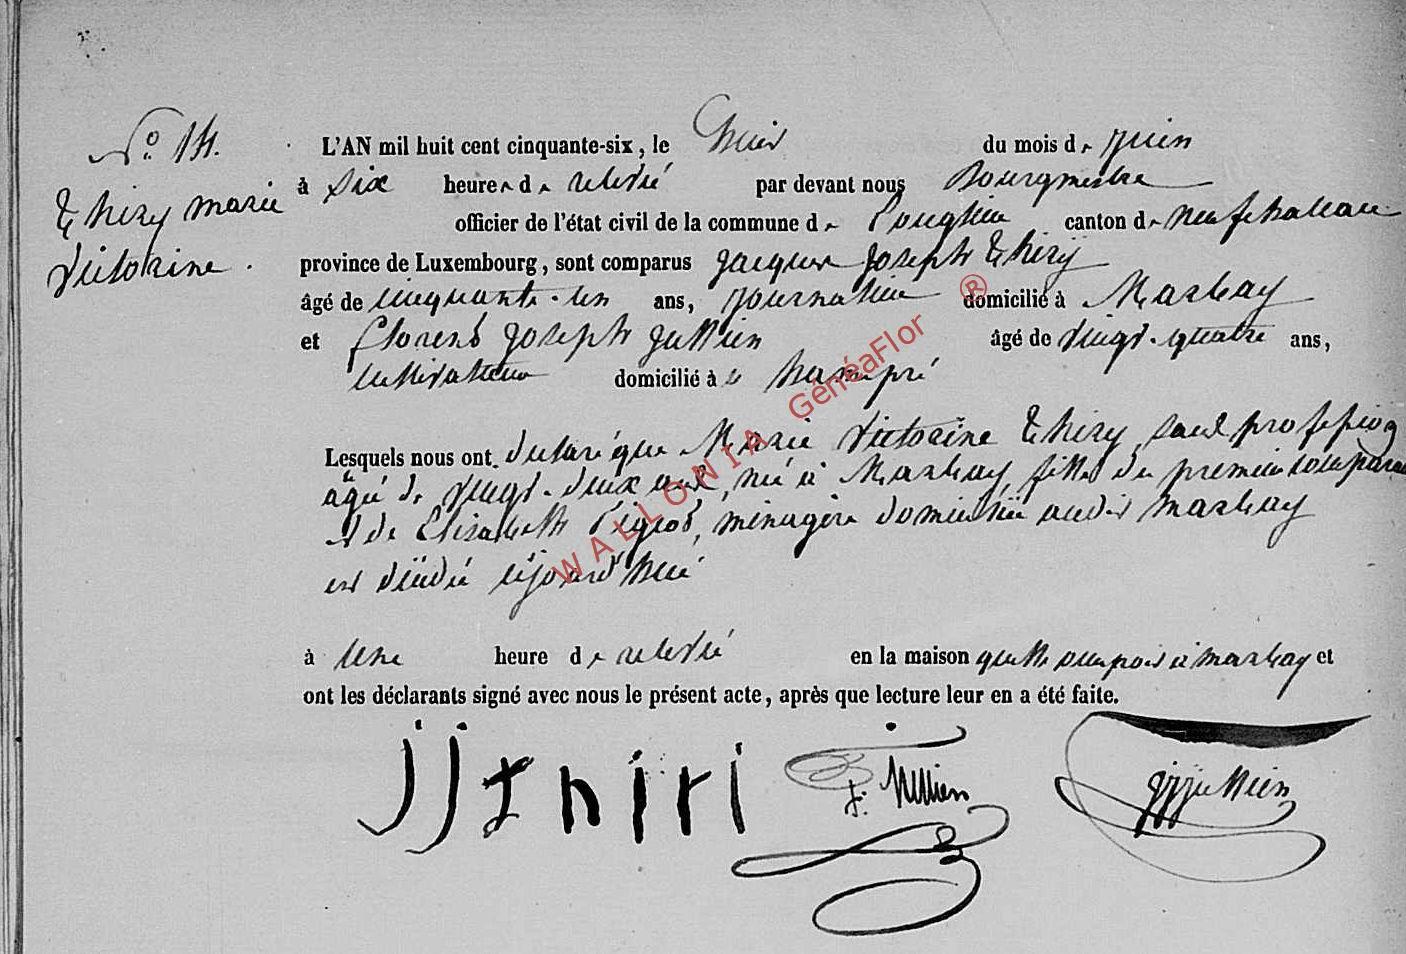 N° 14.
Thiry marie
Victorine.
L'AN mil huit cent cinquante-six, le du mois de juin
à six heures de relevé par devant nous Bourgmestre
officier de l'état civil de la commune de Longlier canton de neufchateau
province de Luxembourg, sont comparus Jacques Joseph Thiry
âgé de cinquante-un ans, journalier domicilié à Marbay
et Florent Joseph Jullien âgé de vingt-quatre ans,
cultivateur domicilié à hamipré
Lesquels nous ont déclaré que Marie Victorine Thiry, sans profession
âgée de vingt-deux ans, née à Marbay, fille du premier comparant
et de Elisabeth, ménagère domiciliée audit marbay
est décédée aujourd'hui
à une heure de relevé en la maison qu'elle occupoit à marbay et
ont les déclarants signé avec nous le présent acte, après que lecture leur en a été faite.
jjthiri
f. Jullien
jjjullien
WALLONIA GénéaFlor ®